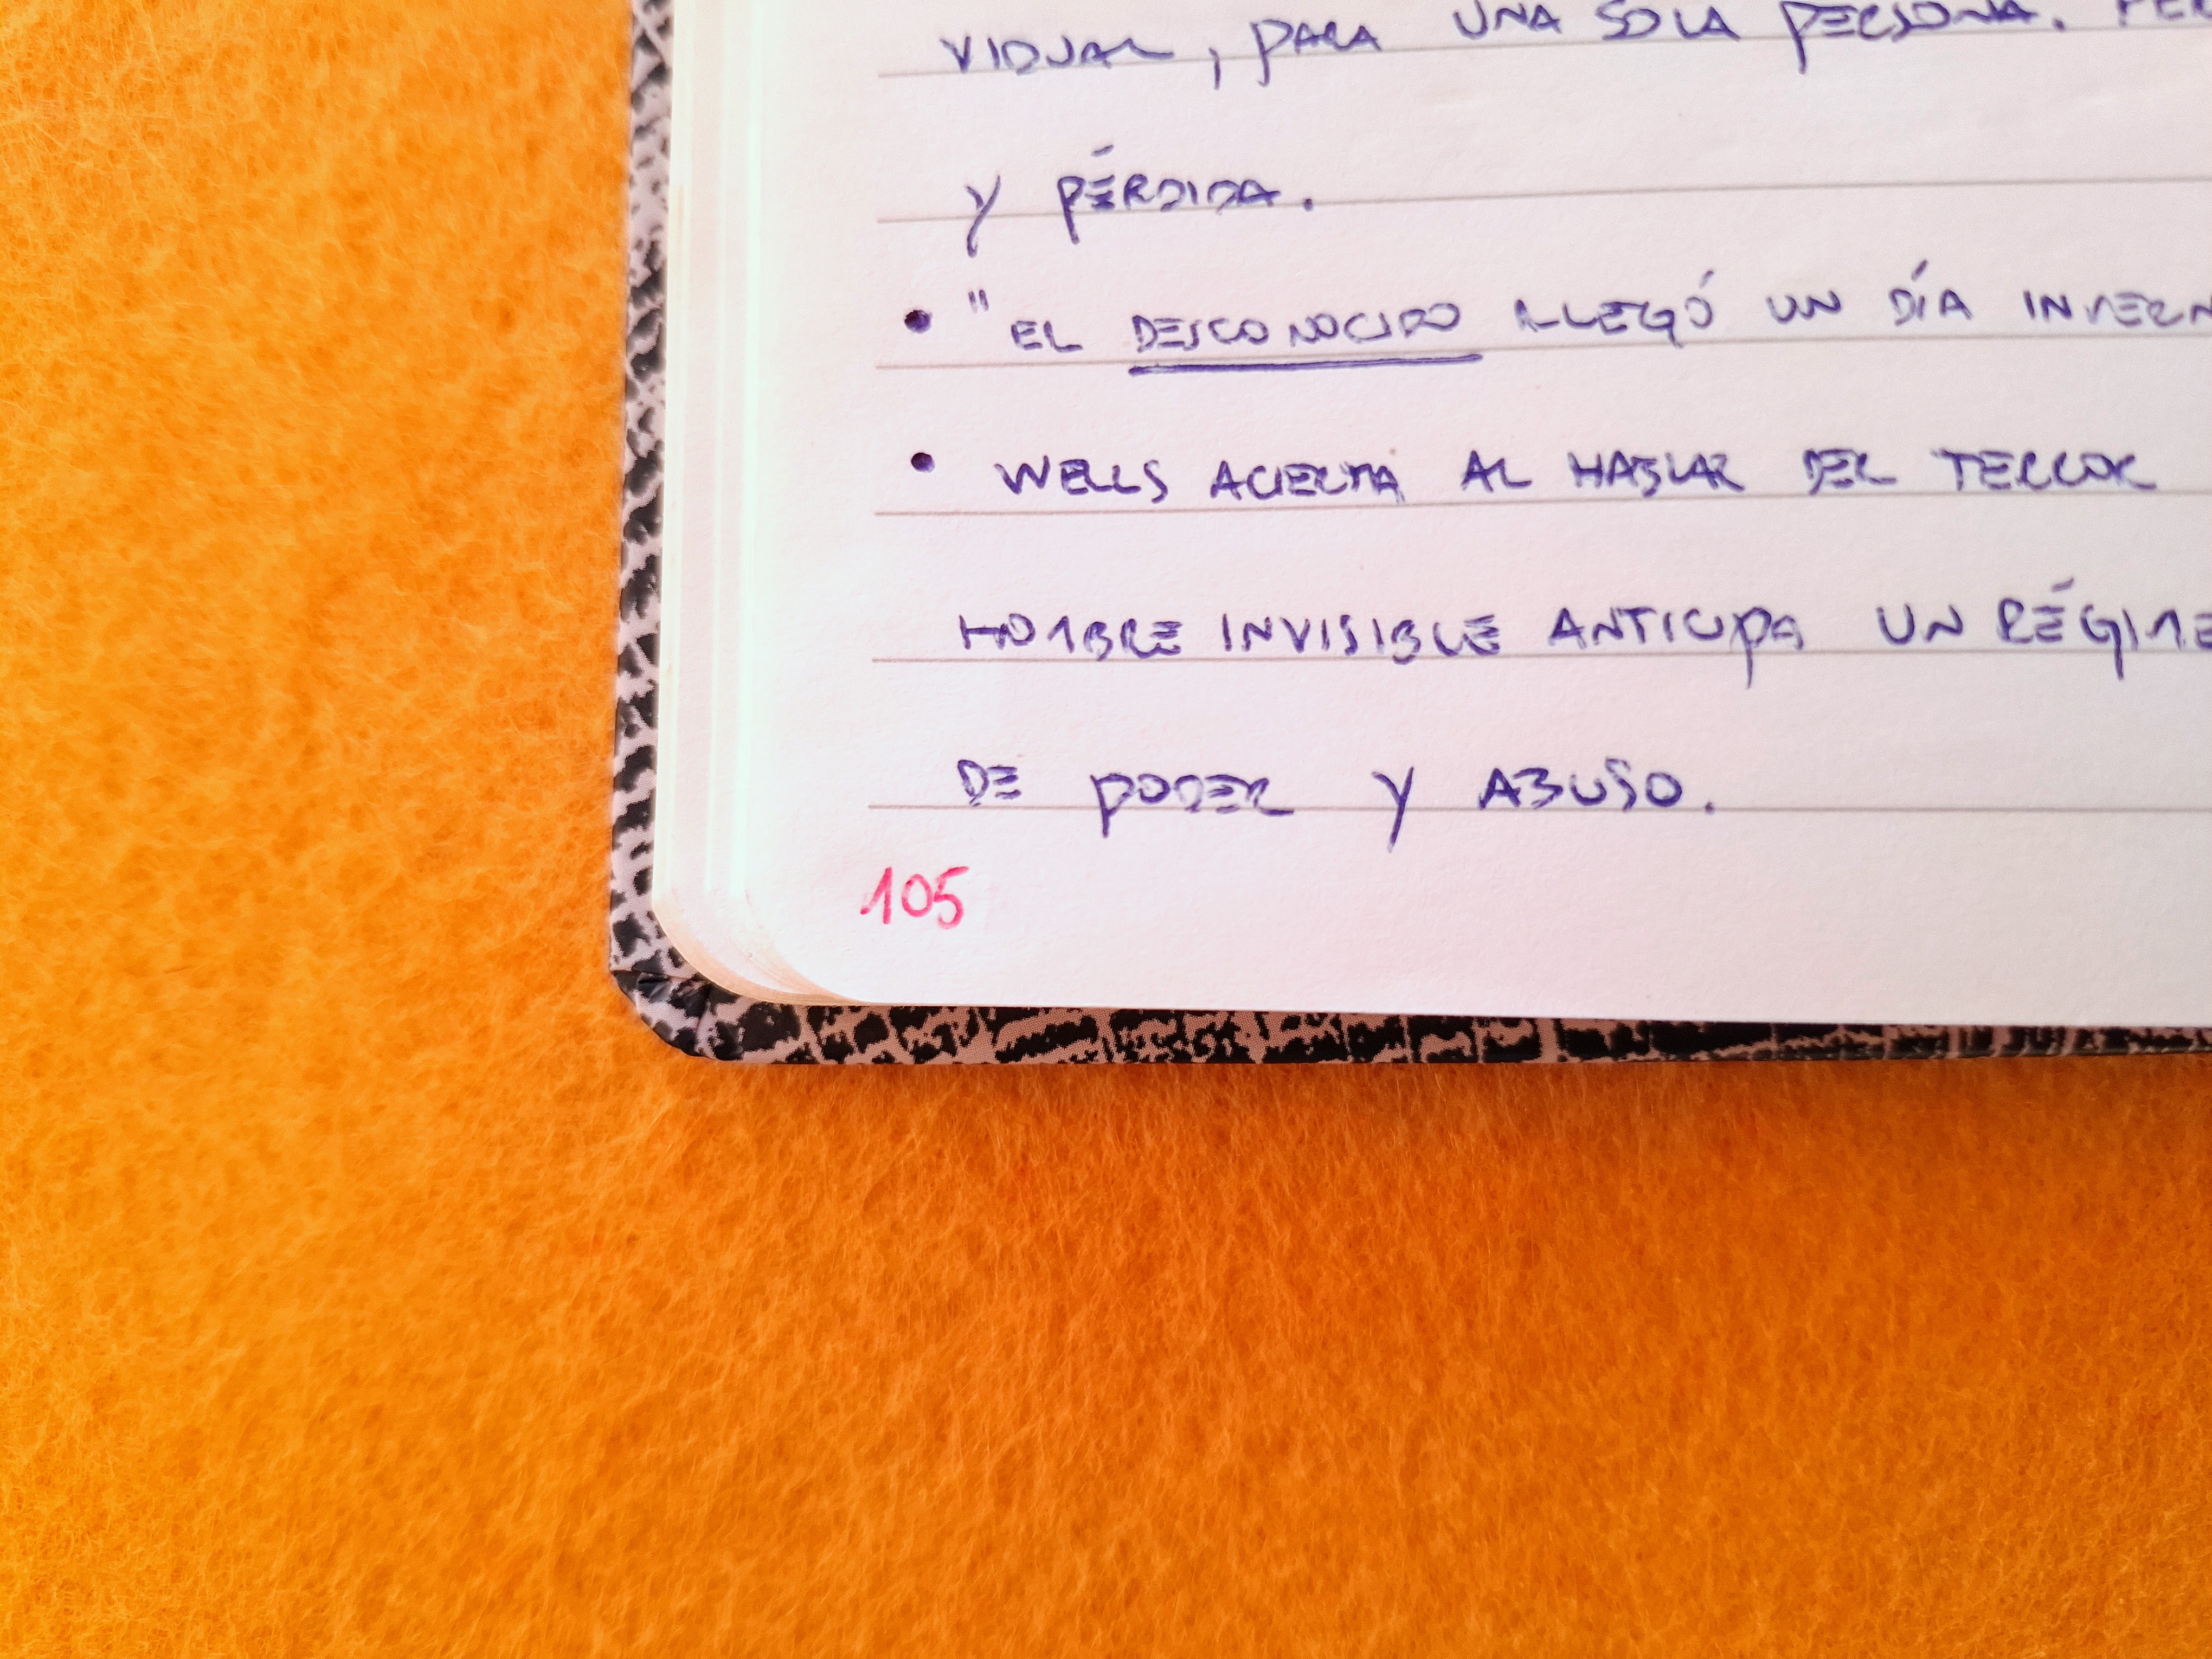 VIDUAL, PARA UNA SOLA PERSONA. PER
Y PÉRDIDA.
• "EL DESCONOCIDO LLEGÓ UN DÍA INVERN
• WELLS ACIERTA AL HABLAR DEL TERROR
HOMBRE INVISIBLE ANTICIPA UN RÉGIME
DE PODER Y ABUSO.
105